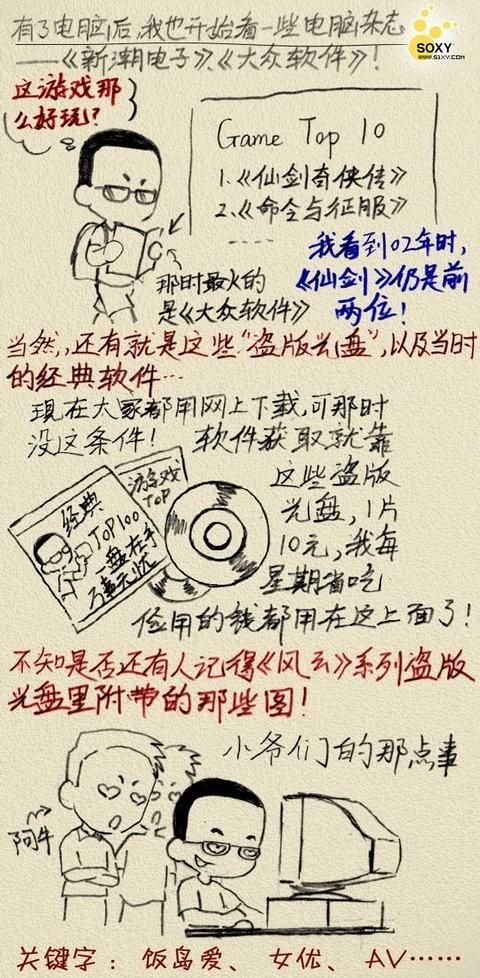 有了电脑后,我也开始看一些电脑杂志
——《新潮电子》、《大众软件》!
SOXY
www.S1XY.COM
这游戏那
么好玩?
Game Top 10
1.《仙剑奇侠传》
2.《命令与征服》
.....
我看到02年时,
《仙剑》仍是前
两位!
那时最火的
是《大众软件》
当然,还有就是这些"盗版光盘",以及当时
的经典软件…
现在大家都用网上下载,可那时
没这条件! 软件获取就靠
这些盗版
光盘,1片
10元,我每
星期省吃
俭用的钱都用在这上面了!
游戏
TOP
经典
TOP100
一盘在手
万事无忧
不知是否还有人记得《风云》系列盗版
光盘里附带的那些图!
小爷们的那点事
阿牛
关键字: 饭岛爱、女优、AV……